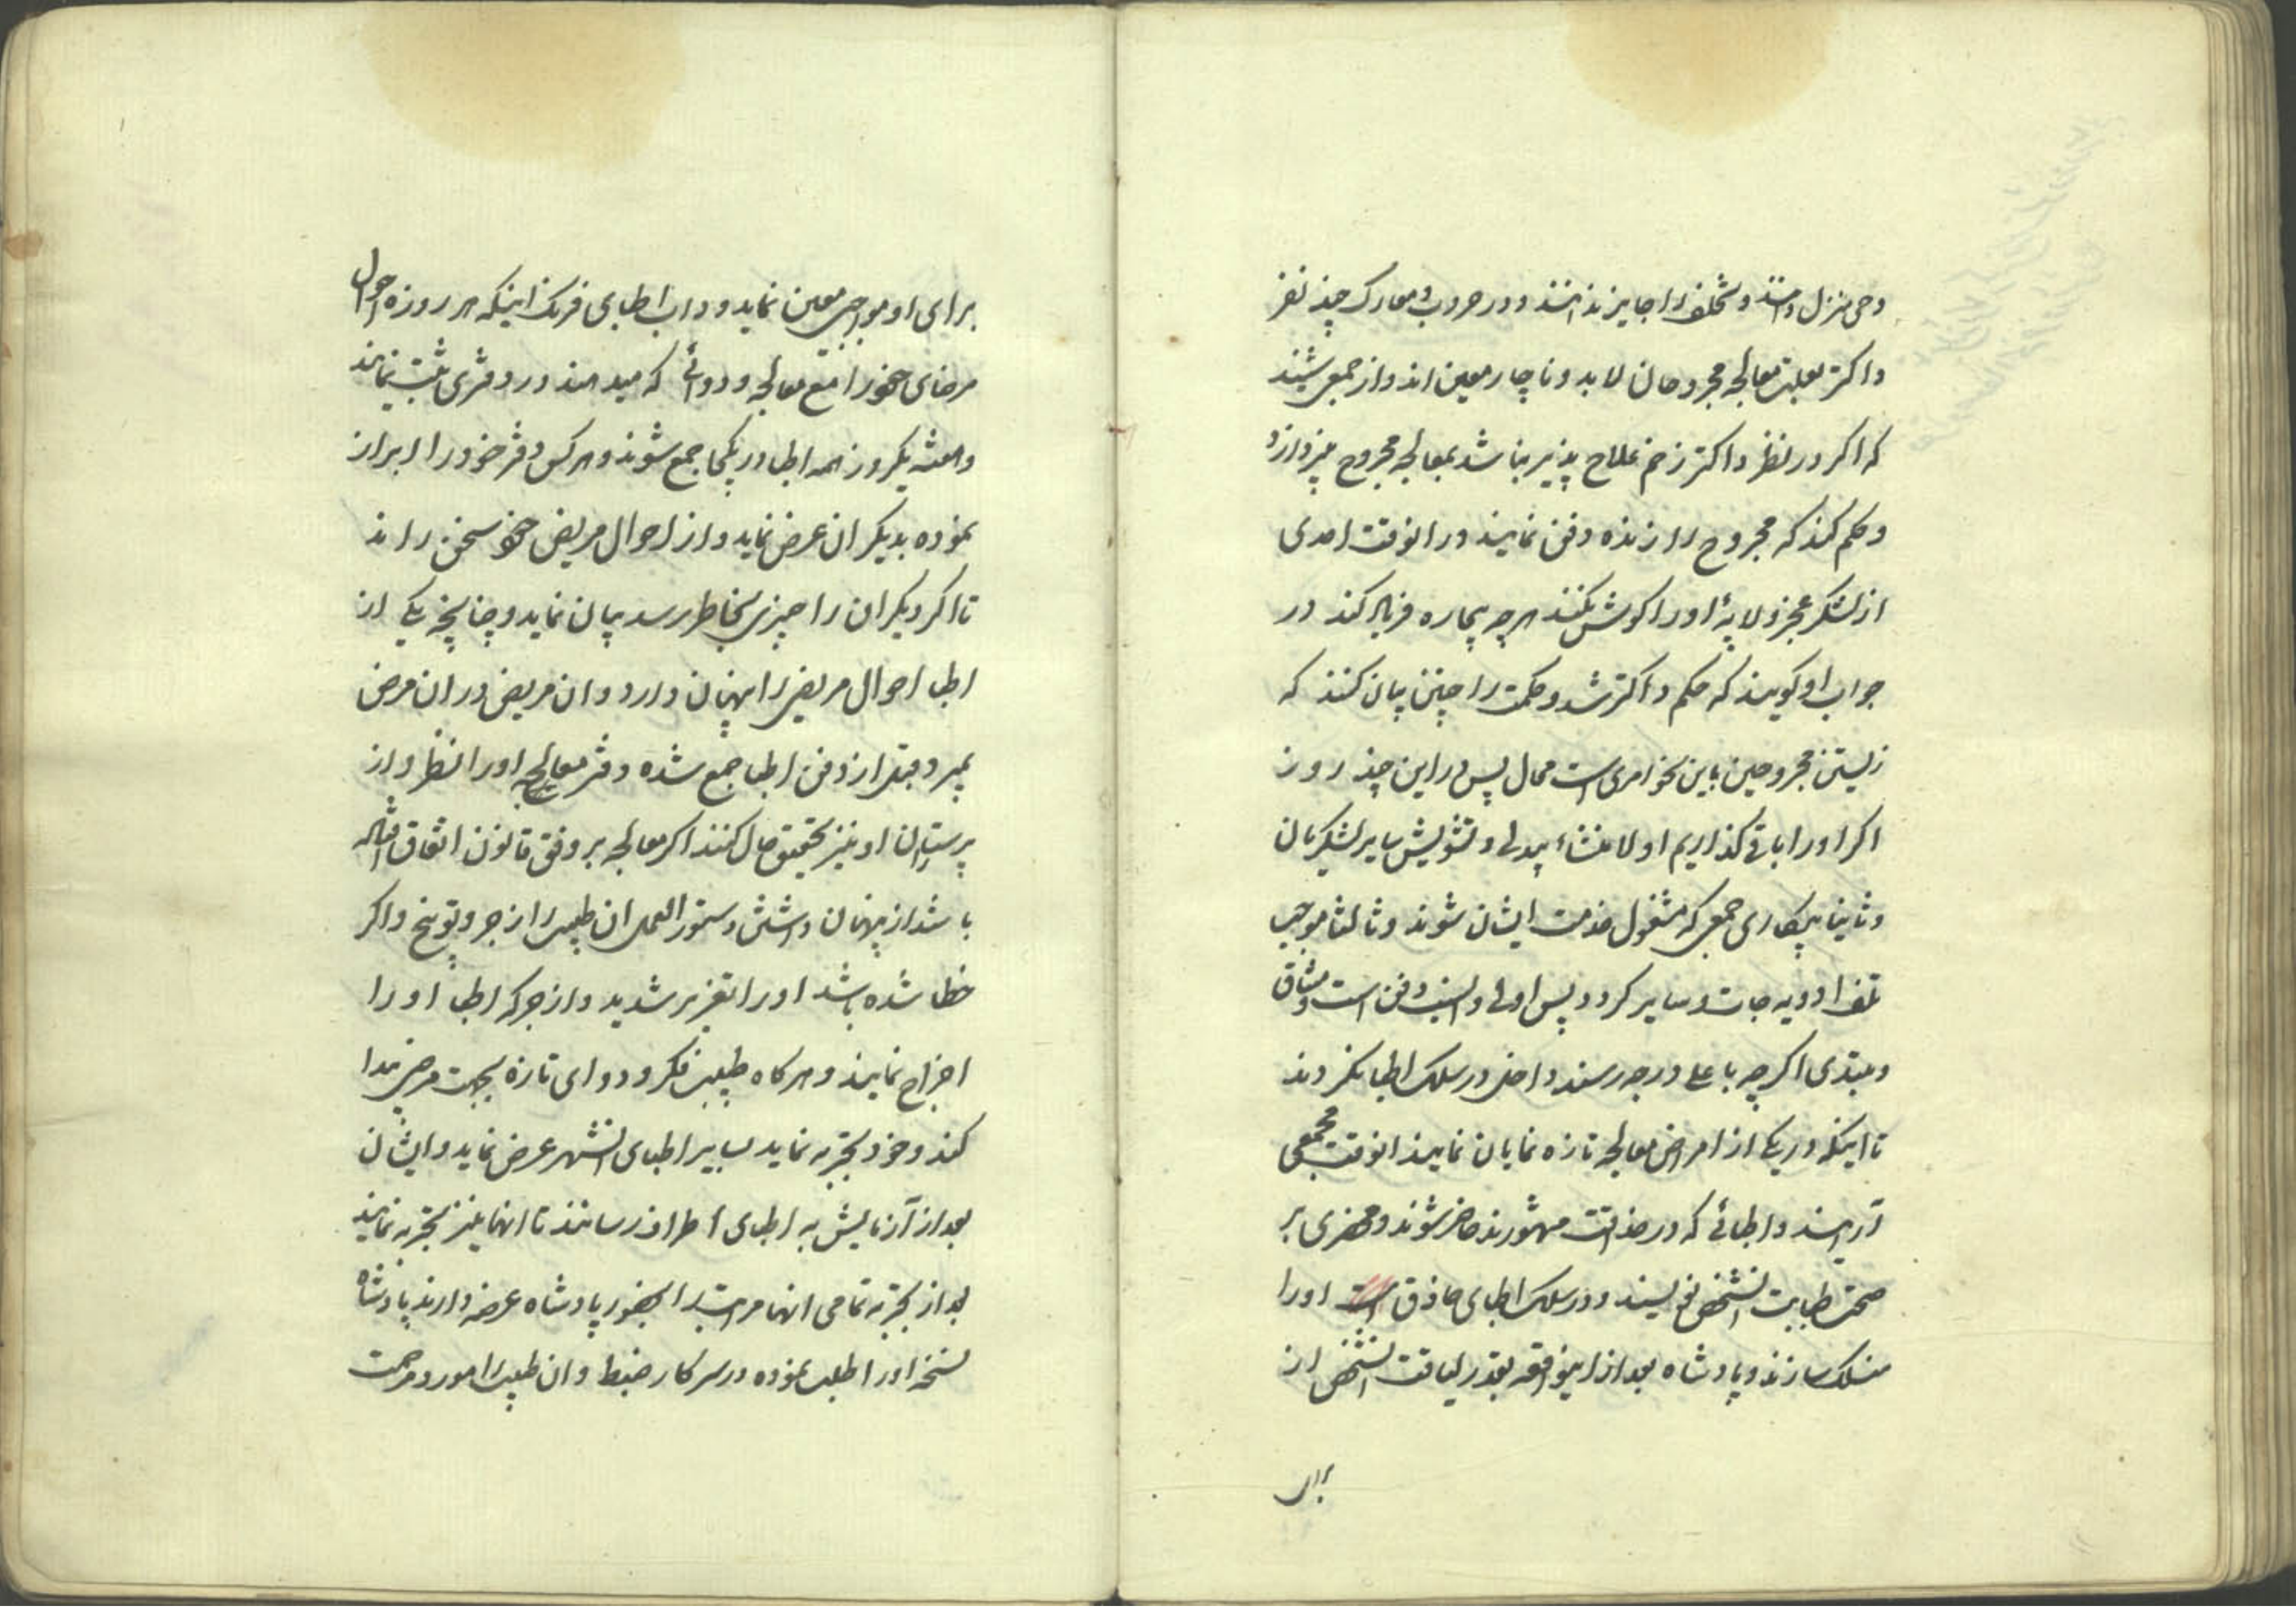 وحی منزل دانند و تخلف را جایز ندانند و در حروب و معارک چند نفر
داکتر بعلت معالجه مجروحان لابد و ناچار معین اند و از جمعی شنیدند
که اکر در نظر داکتر زخم علاج پذیر نباشد بمعالجه مجروح نپردازد
و حکم کند که مجروح را زنده دفن نمایند در انوقت احدی
از لشکر عجز و لابهٔ او را کوش نکنند هر چه بیچاره فریاد کند در
جواب او کویند که حکم داکتر شد و حکمت را چنین بیان کنند که
زیستن مجروحین باین نحو امری است محال پس در این چند روز
اکر او را باقی کذاریم اولا منشاء بیدلی و تشویش سایر لشکریان
و ثانیا بیکاری جمعی که مشغول خدمت ایشان شوند و ثالثا موجب
تلف ادویه جات و سایر کردد پس اولی و انسب دفن است و مشاق
و مبتدی اکرچه باعلی درجه رسند داخل در سلک اطبا نکردند
تا اینکه در یکی از امراض معالجه تازه نمایان نمایند انوقت مجمعی
آرایند و اطبائی که در حذاقت مشهورند حاضر شوند و محضری بر
صحت طبابت انشخص نویسند و در سلک اطبای حاذق او را
منسلک سازند و پادشاه بعد از اینواقعه بقدر لیاقت انشخص از
برای
برای او مواجبی معین نماید و داب اطبای فرنک اینکه هر روزه احوال
مرضای خود را مع معالجه و دوائی که میدهند در دفتری ثبت نمایند
و هفته یکروز همه اطبا در یکجا جمع شوند و هر کس دفتر خود را ابراز
نموده بدیکران عرض نماید و از احوال مریض خود سخن راند
تا اکر دیکران را چیزی بخاطر رسد بیان نماید و چنانچه یکی از
اطبا احوال مریض را پنهان دارد و ان مریض در ان مرض
بمیرد قبل از دفن اطبا جمع شده دفتر معالجه او را نظر و از
پرستاران او نیز تحقیق حال کنند اکر معالجه بر وفق قانون اتفاق افتاده
باشد از پنهان داشتن دستور العمل ان طبیب را زجر و توبیخ و اکر
خطا شده باشد او را تعزیر شدید و از جرکه اطبا او را
اخراج نمایند و هر کاه طبیب فکر و دوای تازه بجهت مرضی پیدا
کند و خود تجربه نماید بسایر اطبای انشهر عرض نماید و ایشان
بعد از آزمایش به اطبای اطراف رسانند تا انها نیز تجربه نمایند
بعد از تجربه تمامی انها مراتب را بحضور پادشاه عرضه دارند پادشاه
نسخه او را طلب نموده در سرکار ضبط و ان طبیب را مورد مرحمت